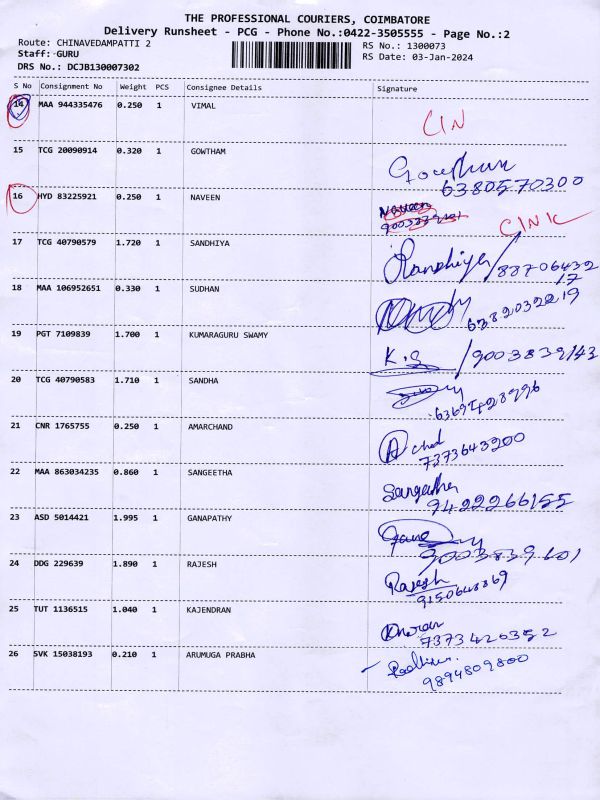 THE PROFESSIONAL COURIERS, COIMBATORE
Delivery Runsheet - PCG - Phone No.:0422-3505555 - Page No.:2
Route: CHINAVEDAMPATTI 2 RS No.: 1300073
Staff: GURU RS Date: 03-Jan-2024
DRS No.: DCJB130007302
S No Consignment No Weight PCS Consignee Details Signature
14 MAA 944335476 0.250 1 VIMAL
CIN
15 TCG 20090914 0.320 1 GOWTHAM
Gowtham
6380570300
16 HYD 83225921 0.250 1 NAVEEN
Naveen
CINK
17 TCG 40790579 1.720 1 SANDHIYA
Sandhiya/8870643217
18 MAA 106952651 0.330 1 SUDHAN
6382032219
19 PGT 7109839 1.700 1 KUMARAGURU SWAMY
K.S /9003839143
20 TCG 40790583 1.710 1 SANDHA
21 CNR 1765755 0.250 1 AMARCHAND
7373643200
22 MAA 863034235 0.860 1 SANGEETHA
Sangeetha
9422266155
23 ASD 5014421 1.995 1 GANAPATHY
9003839601
24 DDG 229639 1.890 1 RAJESH
Rajesh
9150648869
25 TUT 1136515 1.040 1 KAJENDRAN
7373420352
26 SVK 15038193 0.210 1 ARUMUGA PRABHA
9894809800